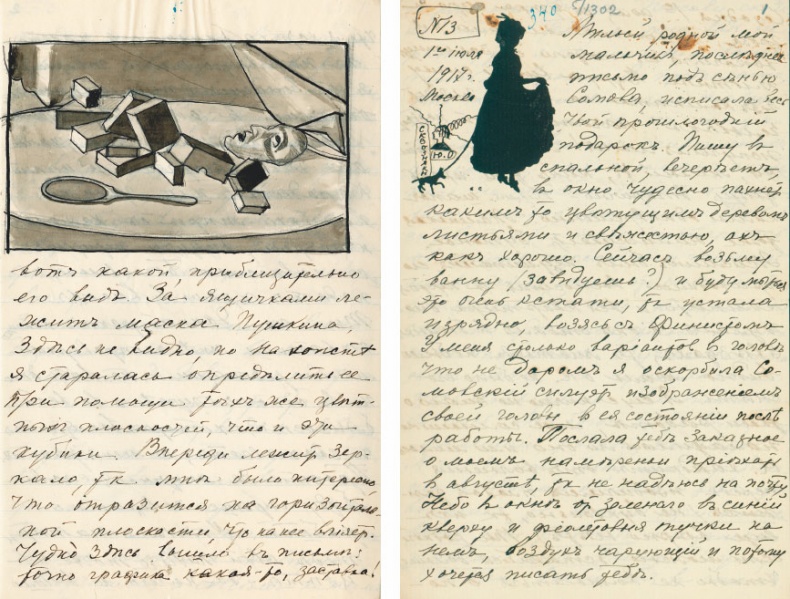 вотъ какой, приблизительно
его видъ. За ящичками ле-
житъ маска Пушкина,
Здѣсь не видно, но на холстѣ
я старалась опредѣлить ее
при помощи тѣхъ же цвѣт-
ныхъ плоскостей, что и эти
кубики. Впереди лежитъ зер-
кало, тк мнѣ было интересно,
что отразится на горизонталь-
ной плоскости, что на нее влiяетъ.
Чудно здѣсь вышло въ письмѣ:
точно графика какая-то, заставка!
340 6/1302
1
№ 3
1го iюля
1917 г.
Москва
СКВОЗНЯКЪ
Ю.О.
Милый родной мой
мальчикъ, послѣднее
письмо подъ сѣнью
Сомова, исписала весь
твой прошлогоднiй
подарокъ. Пишу въ
спальной, вечерѣетъ,
въ окно чудесно пахнетъ
какимъ то цвѣтущимъ деревомъ
листьями и свѣжестью, ахъ
какъ хорошо. Сейчасъ возьму
ванну (завидуешь?) и буду
это очень кстати, тк устала
изрядно, возясь съ Финистомъ
У меня столько варiантовъ въ головѣ
что не даромъ я оскорбила Со-
мовскiй силуэтъ изображенiемъ
своей головы въ ея состоянiи послѣ
работы. Послала тебѣ заказное
о моемъ намѣренiи прiѣхать
въ августѣ, тк не надѣюсь на почту
Небо въ окнѣ отъ зеленаго въ синiй
кверху и фiолетовыя тучки на
немъ, воздухъ чарующiй и потому
хочется писать тебѣ.